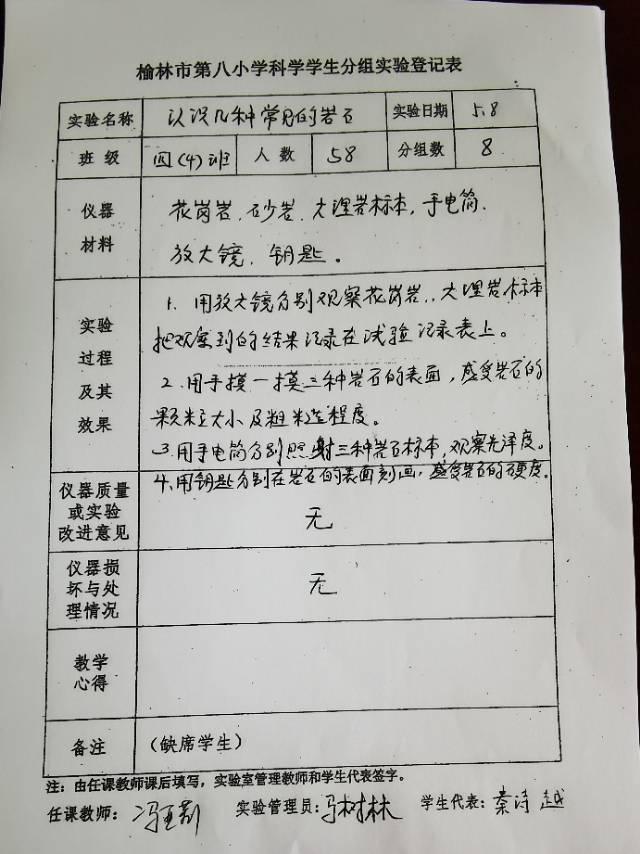 榆林市第八小学科学学生分组实验登记表
实验名称 认识几种常见的岩石 实验日期 5.8
班 级 四(4)班 人 数 58 分组数 8
仪器 材料 花岗岩、砂岩、大理岩标本,手电筒、
放大镜、钥匙。
实验 过程 及其 效果 1. 用放大镜分别观察花岗岩、、大理岩标本
把观察到的结果记录在试验记录表上。
2.用手摸一摸三种岩石的表面,感受岩石的
颗粒大小及粗糙程度。
3.用手电筒分别照射三种岩石标本,观察光泽度。
4.用钥匙分别在岩石的表面刻画,感受岩石的硬度。
仪器质量 或实验 改进意见 无
仪器损 坏与处 理情况 无
教学 心得
备注 (缺席学生)
注:由任课教师课后填写,实验室管理教师和学生代表签字。
任课教师: 冯 实验管理员:马树林 学生代表:秦诗越